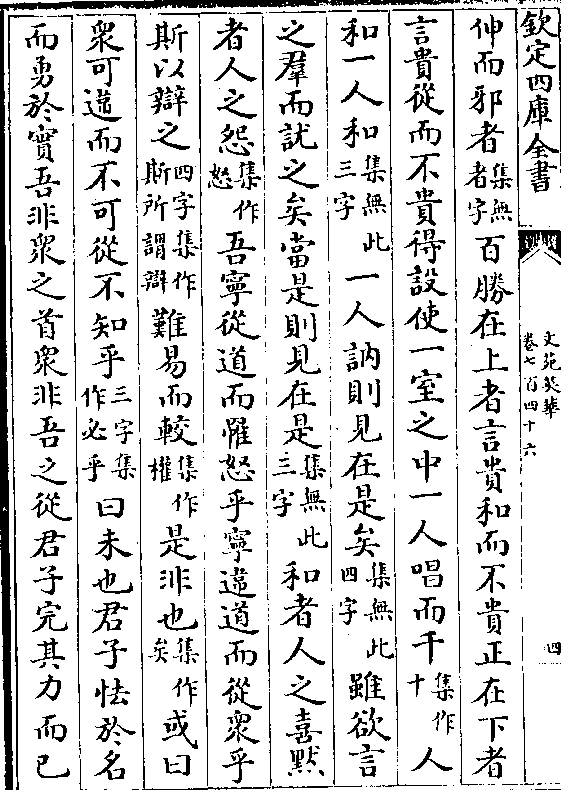 欽定四庫全書
文苑英華
卷七百四十六
四
伸而邪者集無者字百勝在上者言貴和而不貴正在下者
言貴從而不貴得設使一室之中一人唱而千集作十人
和一人和集無此三字一人訥則見在是矣集無此四字雖欲言
之羣而訧之矣當是則見在是集無此三字和者人之喜默
者人之怨集作怒吾寧從道而罹怒乎寧違道而從衆乎
斯以辯之四字集作斯所謂辯難易而較集作權是非也集作矣或曰
衆可違而不可從不知乎三字集作必乎曰未也君子怯於名
而勇於實吾非衆之首衆非吾之從君子完其力而已